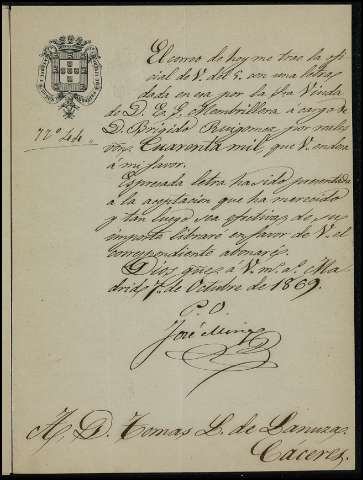 El correo de hoy me trae la ofi
cial de V. del 5. con una letra
dada en esa por la Sra Viuda
de D. E. G. Membrillera á cargo de
D. Brigido Ruigomez por reales
von. Cuarenta mil, que V. endosa
á mi favor.
Nº 44
Espresada letra ha sido presentada
a la aceptacion que ha merecido
y tan luego sea efectivo de su
importe libraré en favor de V. el
correspondiente abonaré.
Dios gue. á V. m. a. Ma
drid 7. de Octubre de 1869.
P. O.
José
A, D. Tomas L. de Lanuza.
Cáceres.